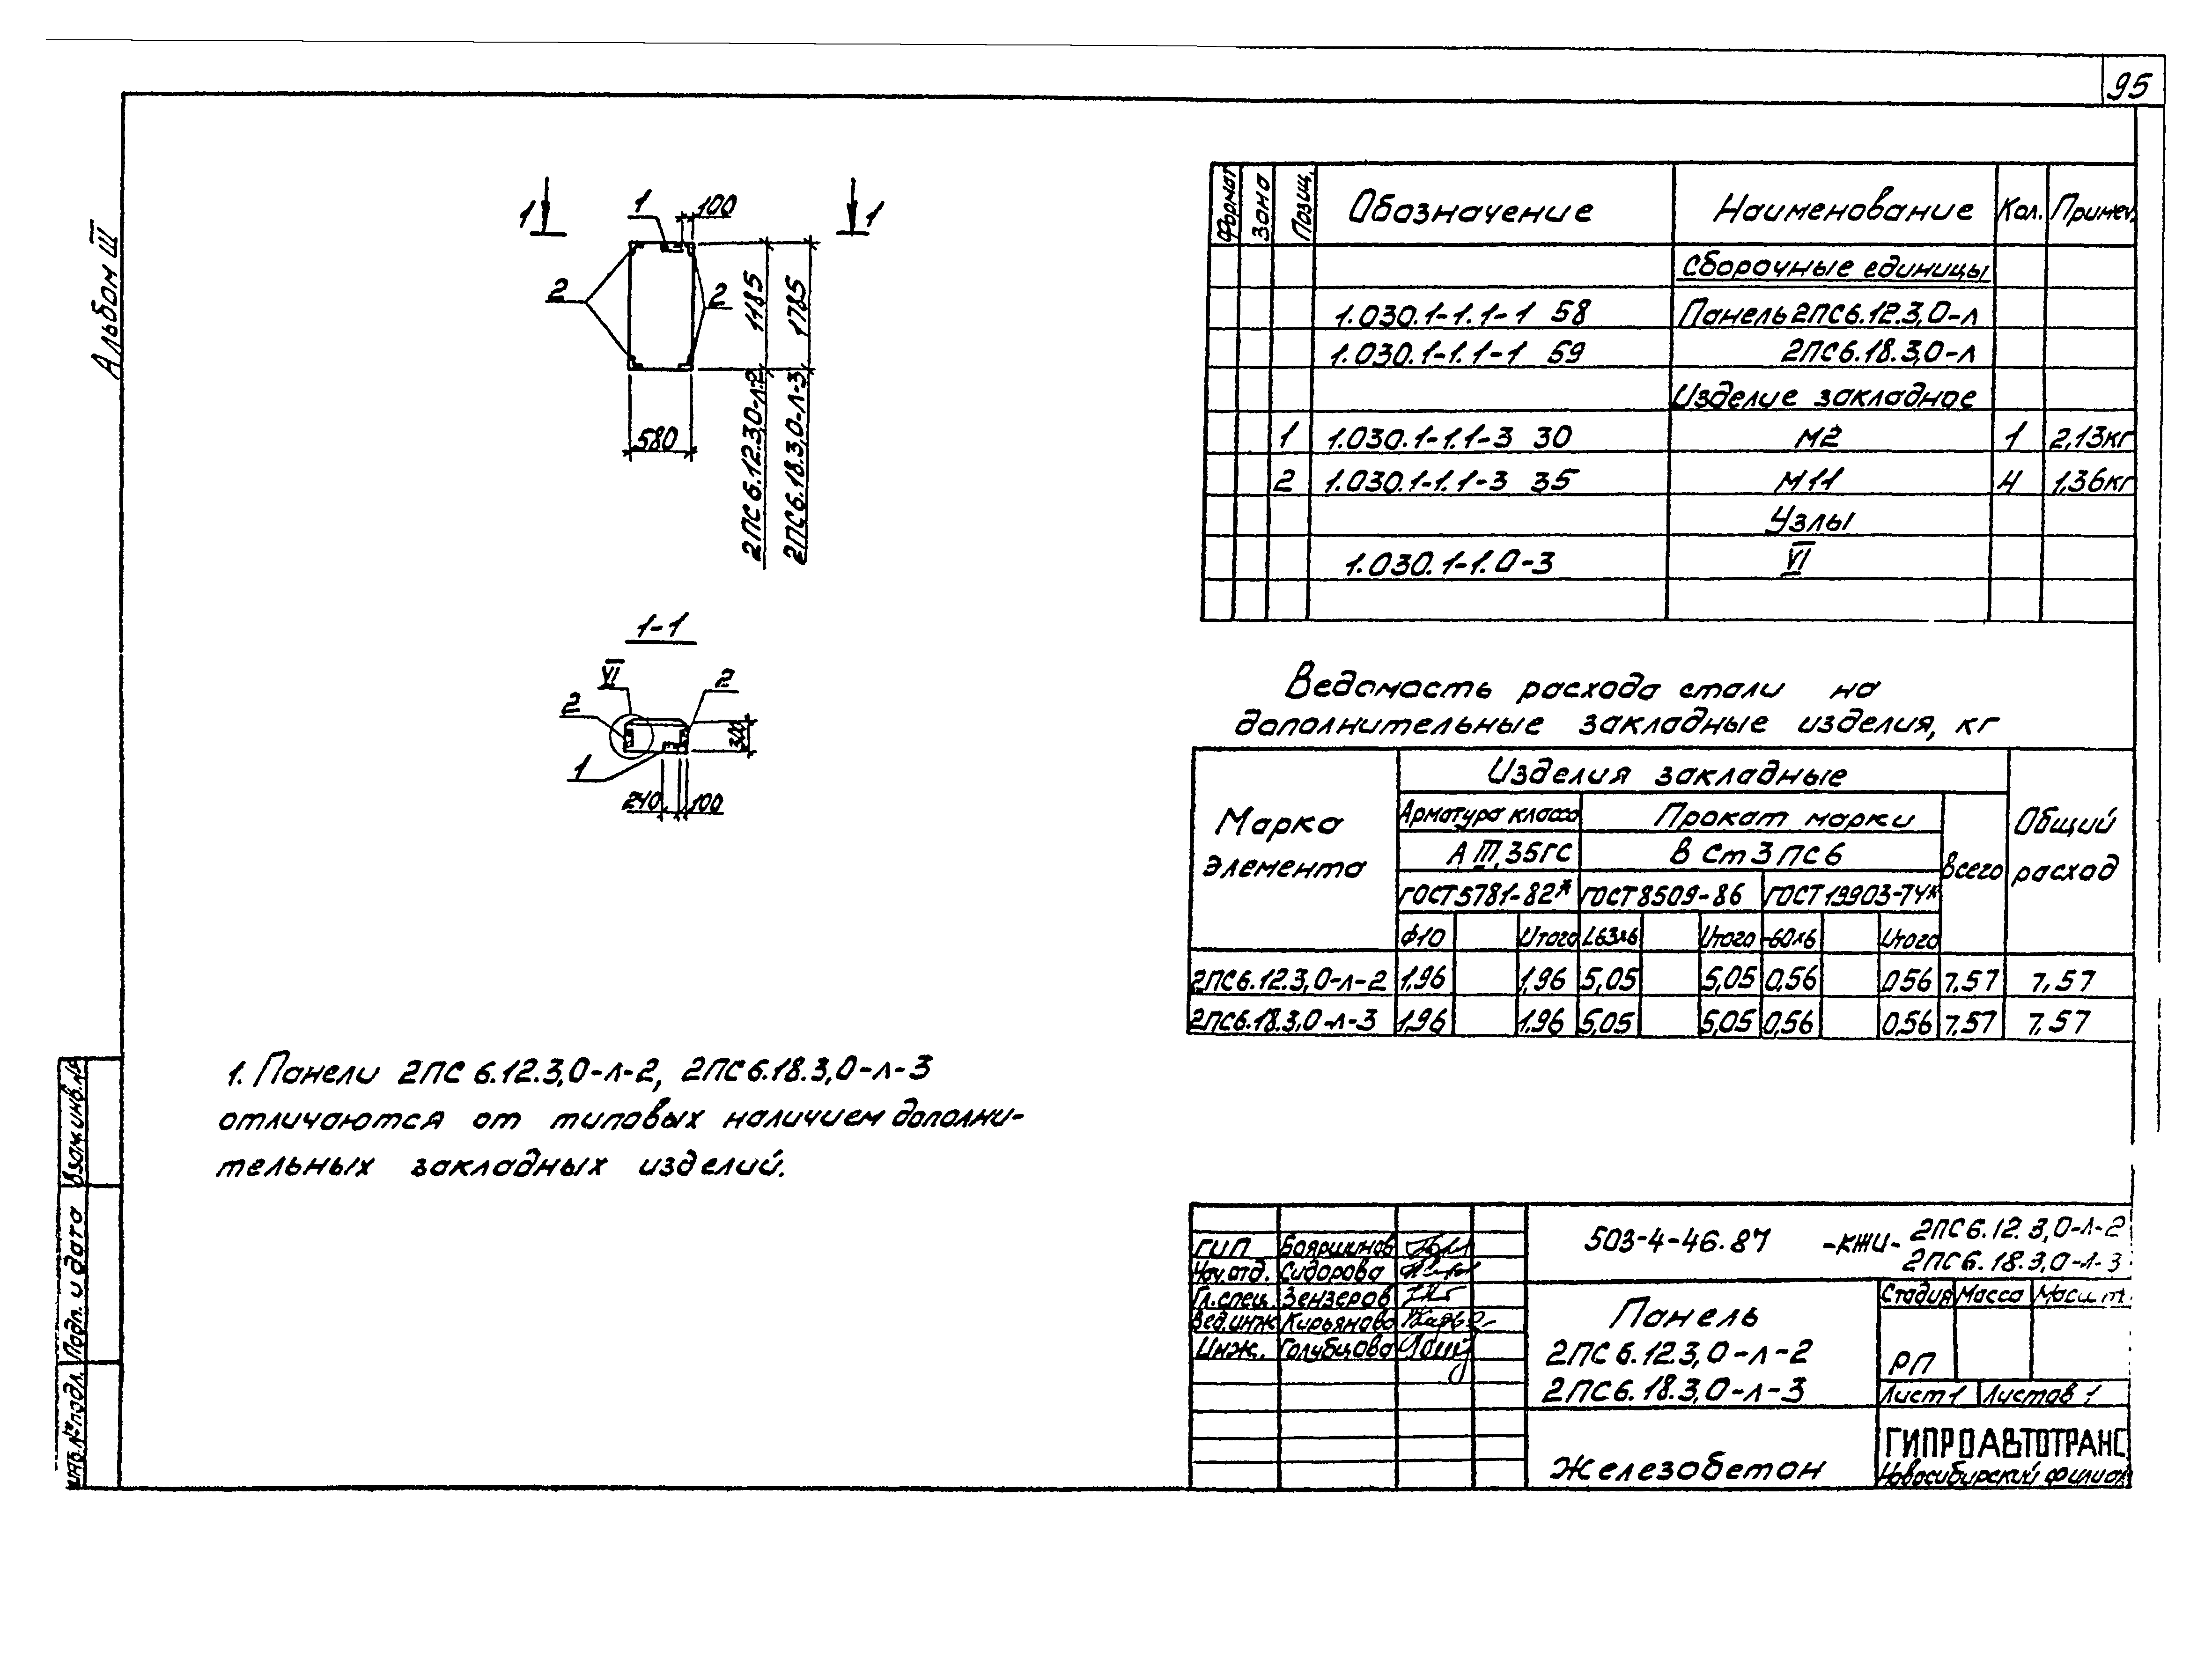 95
Альбом III
1 1 100 1
2 2
1185 1785
580
2ПС6.12.3,0-л-2
2ПС6.18.3,0-л-3
1-1
VI
2 2
300
1
240 100
1. Панели 2ПС 6.12.3,0-л-2, 2ПС6.18.3,0-л-3
отличаются от типовых наличием дополни-
тельных закладных изделий.
Формат Зона Позиц. Обозначение Наименование Кол. Примеч.
Сборочные единицы
1.030.1-1.1-1 58 Панель 2ПС6.12.3,0-л
1.030.1-1.1-1 59 2ПС6.18.3,0-л
Изделие закладное
1 1.030.1-1.1-3 30 М2 1 2,13кг
2 1.030.1-1.1-3 35 М11 4 1,36кг
Узлы
1.030.1-1.0-3 VI
Ведомость расхода стали на
дополнительные закладные изделия, кг
Марка элемента Изделия закладные Общий расход
Арматура класса Прокат марки Всего
А III, 35ГС ВСт3пс6
ГОСТ 5781-82* ГОСТ 8509-86 ГОСТ 19903-74*
Ф10 Итого L63х6 Итого -60х6 Итого
2ПС6.12.3,0-л-2 1,96 1,96 5,05 5,05 0,56 0,56 7,57 7,57
2ПС6.18.3,0-л-3 1,96 1,96 5,05 5,05 0,56 0,56 7,57 7,57
503-4-46.87 -КЖИ- 2ПС6.12.3,0-л-2
2ПС6.18.3,0-л-3
ГИП Бояршинов
Нач.отд. Сидорова
Гл.спец. Зензеров
Вед.инж. Кирьянова
Инж. Голубцова
Панель
2ПС 6.12.3,0-л-2
2ПС6.18.3,0-л-3
Стадия Масса Масшт.
РП
Лист 1 Листов 1
Железобетон
ГИПРОАВТОТРАНС
Новосибирский филиал
Взам.инв.№
Подп. и дата
Инв.№ подл.